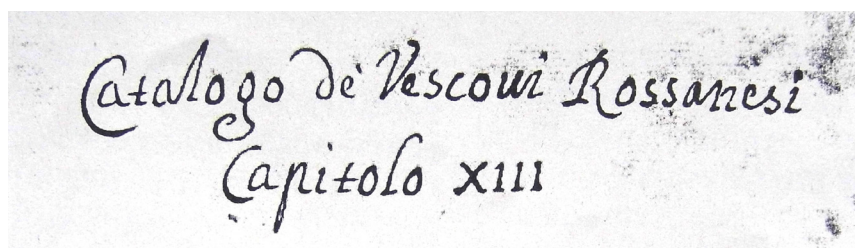 Catalogo de' Vescoui Rossanesi
Capitolo XIII